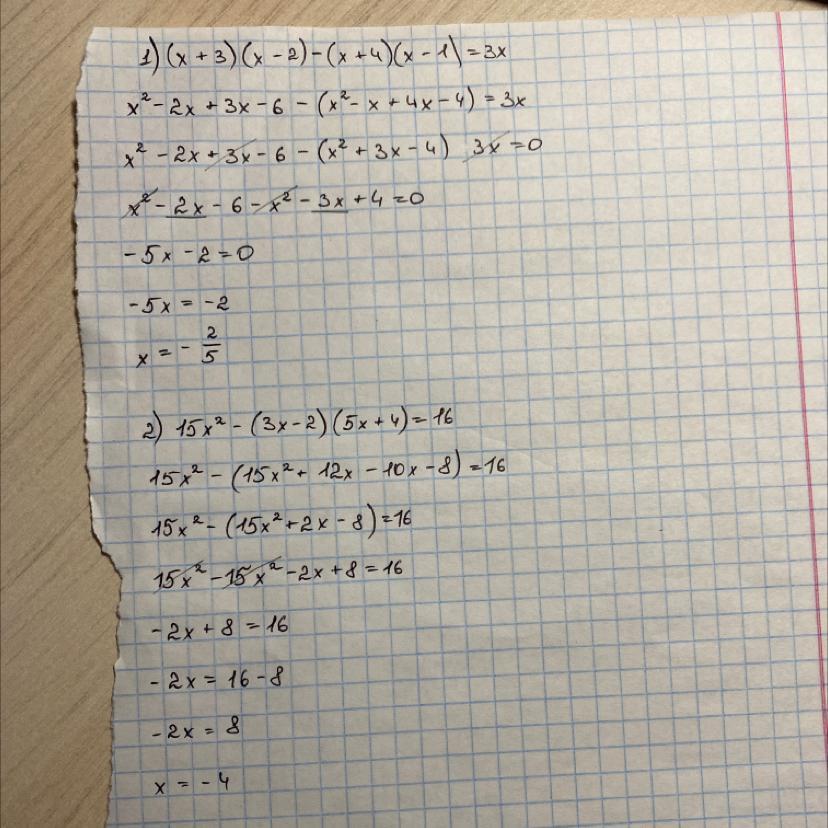 1) (x + 3)(x - 2) - (x + 4)(x - 1) = 3x
x² - 2x + 3x - 6 - (x² - x + 4x - 4) = 3x
x² - 2x + 3x - 6 - (x² + 3x - 4) 3x = 0
x² - 2x - 6 - x² - 3x + 4 = 0
-5x - 2 = 0
-5x = -2
x = - 2/5
2) 15x² - (3x - 2)(5x + 4) = 16
15x² - (15x² + 12x - 10x - 8) = 16
15x² - (15x² + 2x - 8) = 16
15x² - 15x² - 2x + 8 = 16
-2x + 8 = 16
-2x = 16 - 8
-2x = 8
x = -4